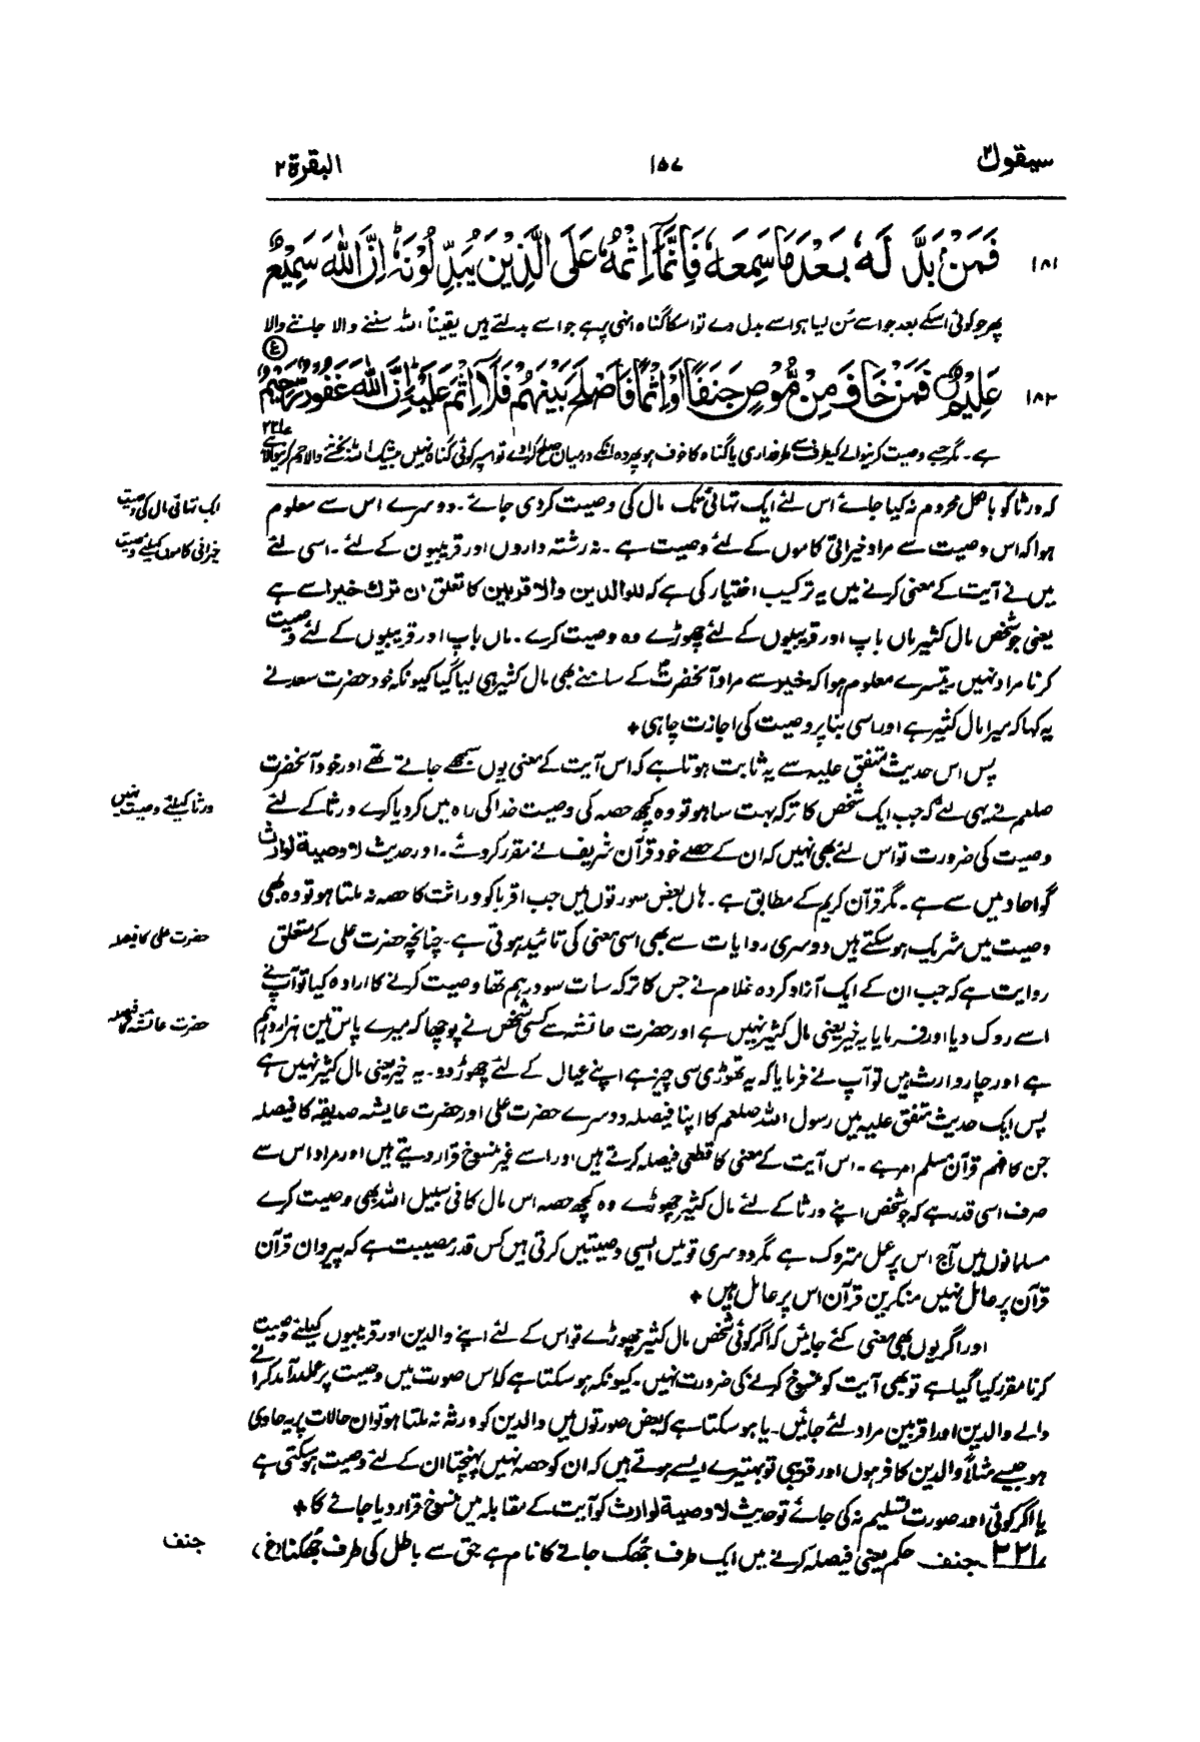 سیقول ۲
۱۵۷
البقرۃ ۲
۱۸۱ فَمَنْۢ بَدَّ لَهٗ بَعْدَ مَا سَمِعَهٗ فَاِنَّمَاۤ اِثْمُهٗ عَلَى الَّذِیْنَ یُبَدِّلُوْنَهٗ ؕ اِنَّ اللّٰهَ سَمِیْعٌ
پھر جو کوئی اسکے بعد جو اسے سُن لیا ہو اسے بدل دے تو اسکا گناہ انہی پر ہے جو اسے بدلتے ہیں یقیناً اللہ سننے والا جاننے والا
۱۸۲ عَلِیْمٌ فَمَنْ خَافَ مِنْ مُّوْصٍ جَنَفًا اَوْ اِثْمًا فَاَصْلَحَ بَیْنَهُمْ فَلَاۤ اِثْمَ عَلَیْهِ ؕ اِنَّ اللّٰهَ غَفُوْرٌ رَّحِیْمٌ
ع
۲۲۱
ہے۔ مگر جسے وصیت کرنیوالے کیطرف سے طرفداری یا گناہ کا خوف ہو پھر وہ انکے درمیان صلح کرا دے تو اسپر کوئی گناہ نہیں بیشک اللہ بخشنے والا رحم کرنیوالا ہے
کہ ورثا کو بالکل محروم نہ کیا جائے اس لئے ایک تہائی تک مال کی وصیت کر دی جائے۔ دوسرے اس سے معلوم
ایک تہائی مال کی وصیت
ہوا کہ اس وصیت سے مراد خیراتی کاموں کے لئے وصیت ہے۔ نہ رشتہ داروں اور قریبیوں کے لئے۔ اسی لئے
خیراتی کاموں کیلئے وصیت
میں نے آیت کے معنی کرنے میں یہ ترکیب اختیار کی ہے کہ للوالدین والاقربین کا تعلق ان ترک خیرا سے ہے
یعنی جو شخص مال کثیر ماں باپ اور قریبیوں کے لئے چھوڑے وہ وصیت کرے۔ ماں باپ اور قریبیوں کے لئے وصیت
کرنا مراد نہیں۔ تیسرے معلوم ہوا کہ خیر سے مراد آنحضرتؐ کے سامنے بھی مال کثیر ہی لیا گیا کیونکہ خود حضرت سعد نے
یہ کہا کہ میرا مال کثیر ہے اور اسی بنا پر وصیت کی اجازت چاہی ٭
پس اس حدیث متفق علیہ سے یہ ثابت ہوتا ہے کہ اس آیت کے معنی یوں سمجھے جاتے تھے اور خود آنحضرت
صلعم نے یہی لئے کہ جب ایک شخص کا ترکہ بہت سا ہو تو وہ کچھ حصہ کی وصیت خدا کی راہ میں کر دیا کرے ورثا کے لئے
ورثا کیلئے وصیت نہیں
وصیت کی ضرورت تو اس لئے بھی نہیں کہ ان کے حصے خود قرآن شریف نے مقرر کر دئے۔ اور حدیث لا وصیة لوارث
گو احاد میں سے ہے۔ مگر قرآن کریم کے مطابق ہے۔ ہاں بعض صورتوں میں جب اقربا کو وراثت کا حصہ نہ ملتا ہو تو وہ بھی
وصیت میں شریک ہو سکتے ہیں دوسری روایات سے بھی اسی معنی کی تائید ہوتی ہے۔ چنانچہ حضرت علی کے متعلق
حضرت علی کا فیصلہ
روایت ہے کہ جب ان کے ایک آزاد کردہ غلام نے جس کا ترکہ سات سو درہم تھا وصیت کرنے کا ارادہ کیا تو آپ نے
اسے روک دیا اور فرمایا یہ خیر یعنی مال کثیر نہیں ہے اور حضرت عائشہ سے کسی شخص نے پوچھا کہ میرے پاس تین ہزار درہم
حضرت عائشہ کا فیصلہ
ہے اور چار وارث ہیں تو آپ نے فرمایا کہ یہ تھوڑی سی چیز ہے اپنے عیال کے لئے چھوڑ دو۔ یہ خیر یعنی مال کثیر نہیں ہے
پس ایک حدیث متفق علیہ میں رسول اللہ صلعم کا اپنا فیصلہ دوسرے حضرت علی اور حضرت عایشہ صدیقہ کا فیصلہ
جن کا فہم قرآن مسلم امر ہے۔ اس آیت کے معنی کا قطعی فیصلہ کرتے ہیں اور اسے غیر منسوخ قرار دیتے ہیں اور مراد اس سے
صرف اسی قدر ہے کہ جو شخص اپنے ورثا کے لئے مال کثیر چھوڑے وہ کچھ حصہ اس مال کا فی سبیل اللہ بھی وصیت کرے
مسلمانوں میں آج اس پر عمل متروک ہے مگر دوسری قومیں ایسی وصیتیں کرتی ہیں کس قدر مصیبت ہے کہ پیروان قرآن
قرآن پر عامل نہیں منکرین قرآن اس پر عامل ہیں ٭
اور اگر یوں بھی معنی کئے جائیں کہ اگر کوئی شخص مال کثیر چھوڑے تو اس کے لئے اپنے والدین اور قریبیوں کیلئے وصیت
کرنا مقرر کیا گیا ہے تو بھی آیت کو منسوخ کرنے کی ضرورت نہیں۔ کیونکہ ہو سکتا ہے کہ اس صورت میں وصیت پر عملدرآمد کرانے
والے والدین اور اقربین مراد لئے جائیں۔ یا ہو سکتا ہے کہ بعض صورتوں میں والدین کو ورثہ نہ ملتا ہو تو ان حالات پر یہ حاوی
ہو جیسے مثلاً والدین کافر ہوں اور قریبی تو بہتیرے ایسے ہوتے ہیں کہ ان کو حصہ نہیں پہنچتا ان کے لئے وصیت ہو سکتی ہے
یا اگر کوئی اور صورت تسلیم نہ کی جائے تو حدیث لا وصیة لوارث کو آیت کے مقابلہ میں منسوخ قرار دیا جائے گا ٭
۲۲۱۔ جنف حکم یعنی فیصلہ کرنے میں ایک طرف جُھک جانے کا نام ہے حق سے باطل کی طرف جُھکنا (غ)
جنف